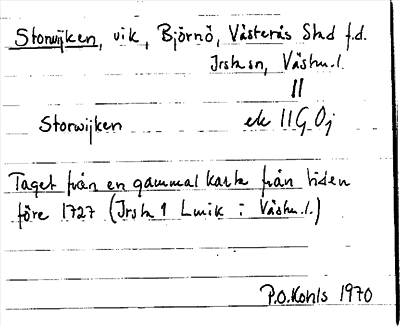 Storwijken, vik, Björnö, Västerås Stad f.d.
Irsta sn, Västm. l.
||
Storwijken ek 11G 0j
Taget från en gammal karta från tiden
före 1727 (Irsta 1 Lmik i Västm. l.)
P.O. Kohls 1970